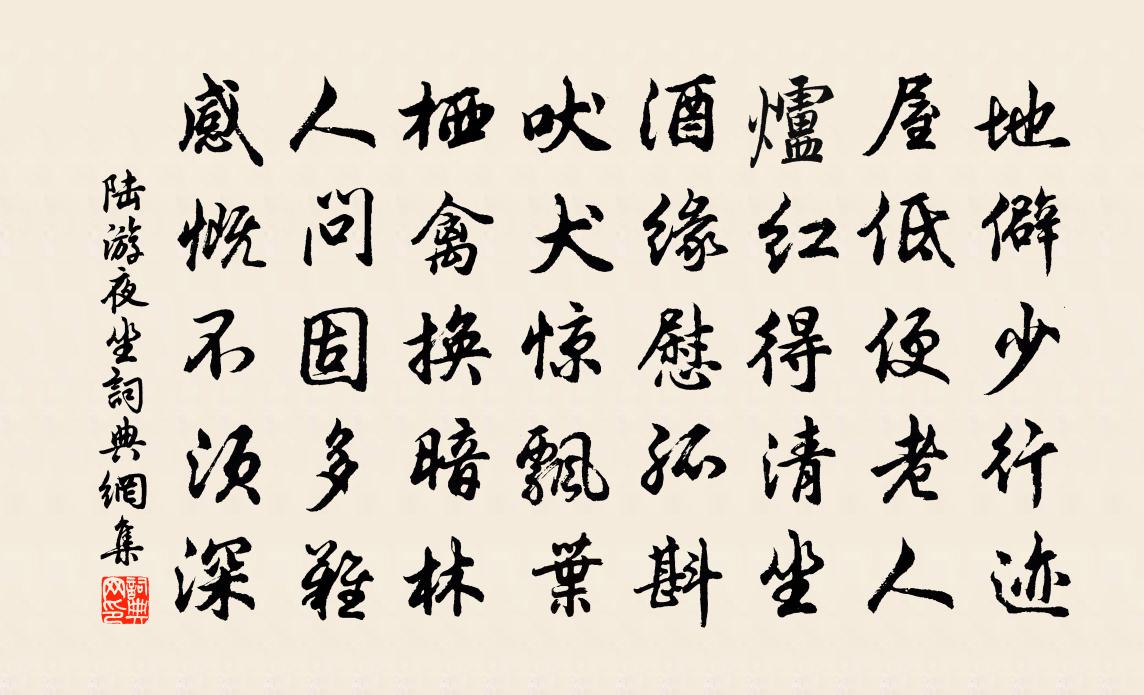 地僻少行迹
屋低便老人
爐红得清坐
酒缘慰孤斟
吠犬惊飄葉
栖禽换暗林
人问固多難
感慨不须深
陆游夜坐詞典網集
詞典网印